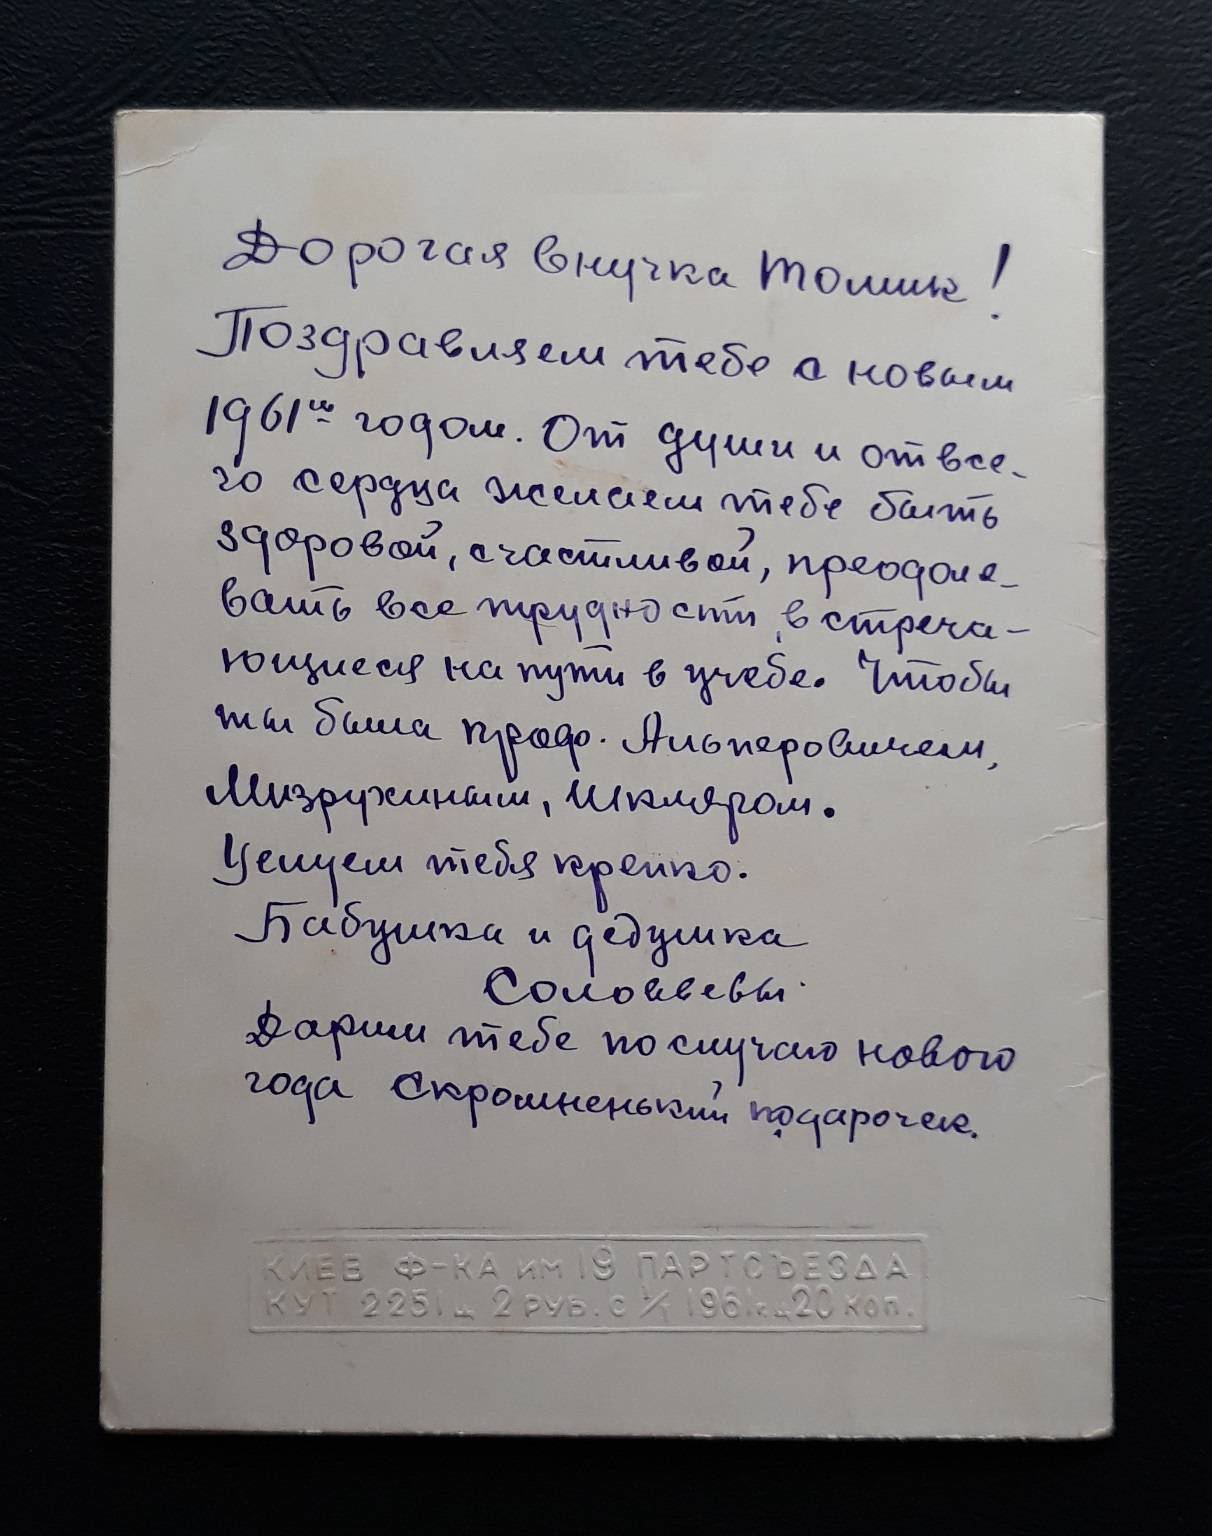 Дорогая внучка Томик!
Поздравляем тебе с новым
1961ым годом. От души и от все-
го сердца желаем тебе быть
здоровой, счастливой, преодоле-
вать все трудности, встреча-
ющиеся на пути в учебе. Чтобы
ты была проф. Альперовичем,
Мизрухиным, Шкляром.
Целуем тебя крепко.
Бабушка и дедушка
Соловьевы.
Дарим тебе по случаю нового
года скромненький подарочек.
КИЕВ Ф-КА ИМ 19 ПАРТСЪЕЗДА
КУТ 2251 Ц 2 РУБ. С 1/1 1961 Г Ц 20 КОП.